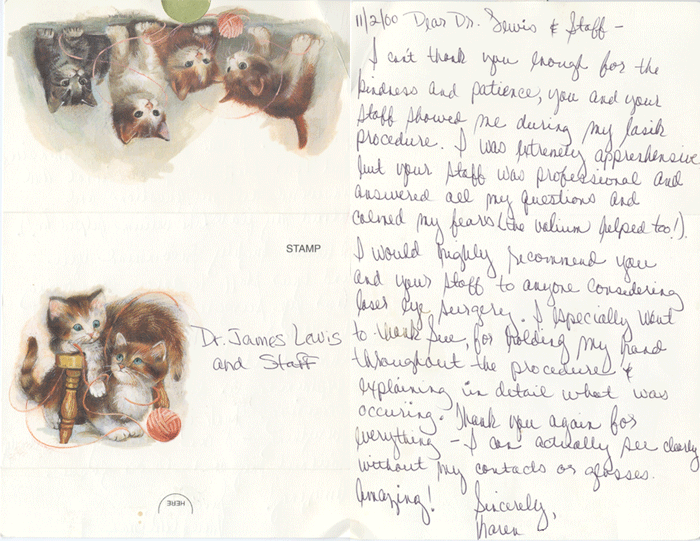 STAMP
Dr. James Lewis
and Staff
HERE
11/2/00 Dear Dr. Lewis & Staff -
I can't thank you enough for the
kindness and patience, you and your
staff showed me during my lasik
procedure. I was extremely apprehensive
but your staff was professional and
answered all my questions and
calmed my fears (the valium helped too!).
I would highly recommend you
and your staff to anyone considering
laser eye surgery. I especially want
to thank Sue, for holding my hand
throughout the procedure &
explaining in detail what was
occuring. Thank you again for
everything - I can actually see clearly
without my contacts or glasses.
Amazing!
Sincerely,
Karen